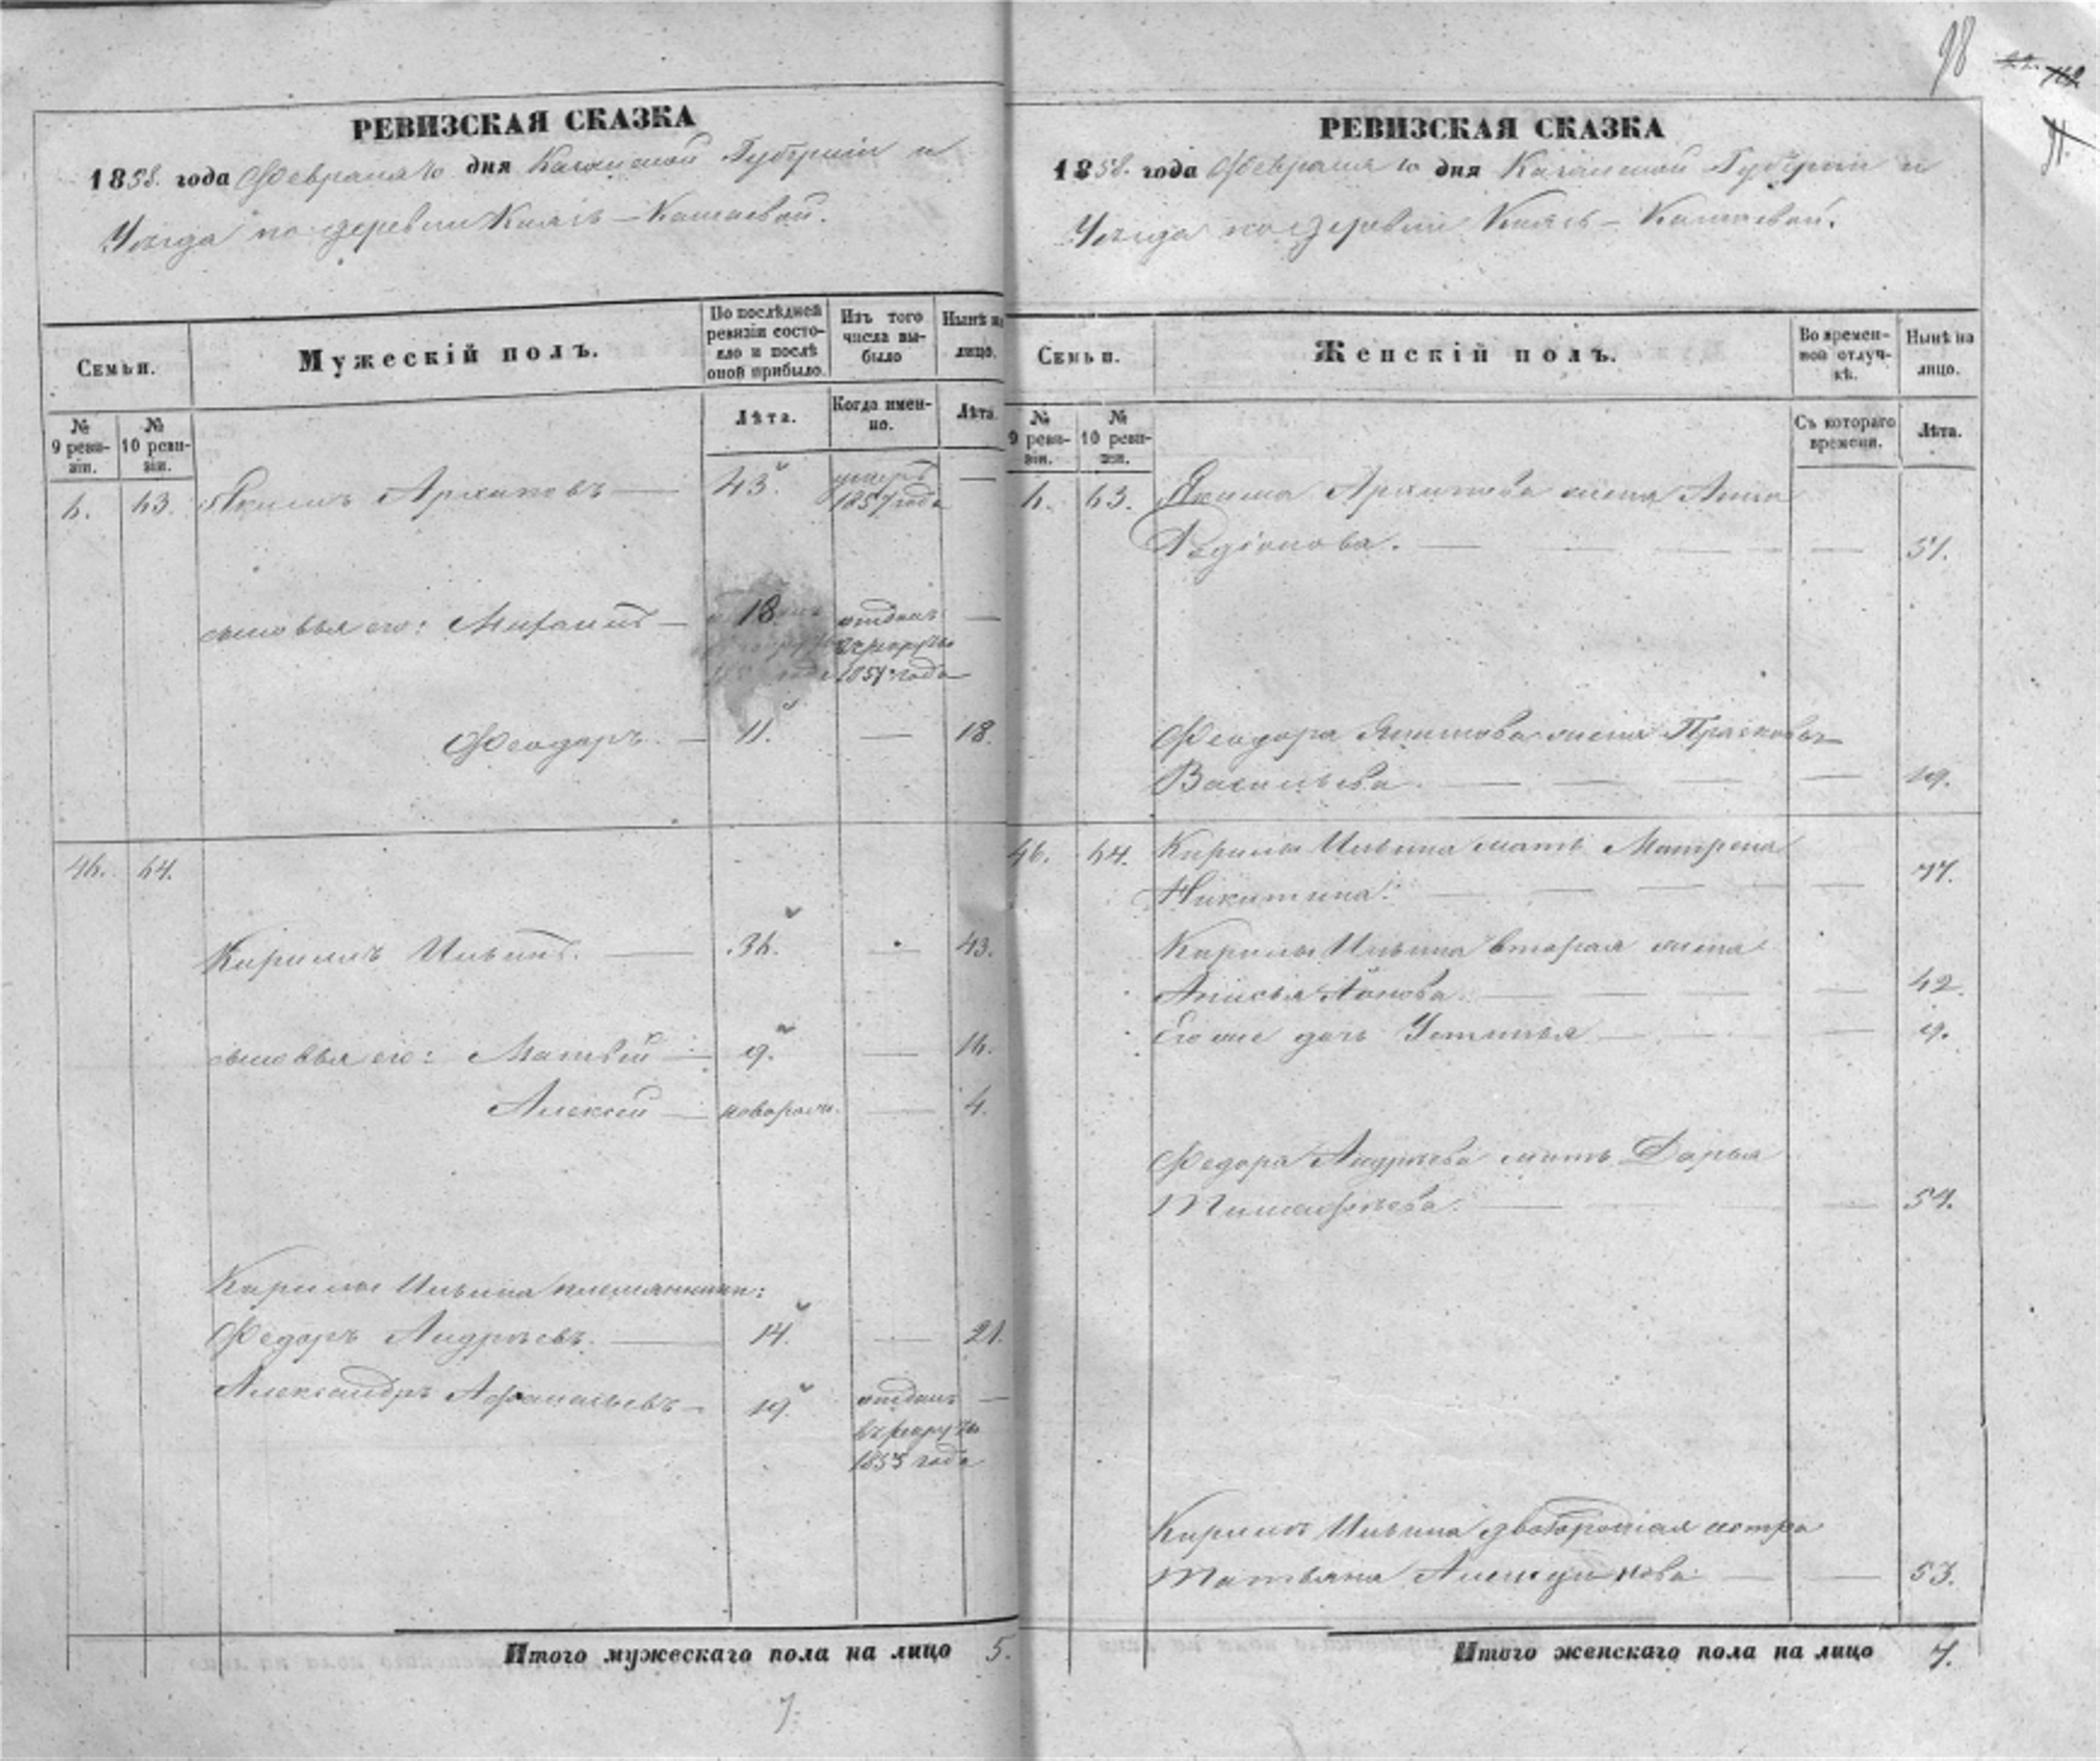 98
РЕВИЗСКАЯ СКАЗКА
1858. года Февраля 10 дня Казанской Губернии и
Уѣзда по деревни Князь-Камаевой.
Семьи.
Мужескій полъ.
По послѣдней ревизіи состояло и послѣ оной прибыло.
Изъ того числа выбыло
Нынѣ на лицо.
№ 9 ревизіи.
№ 10 ревизіи.
Лѣта.
Когда именно.
Лѣта.
6. 63. Якимъ Архиповъ — 43. умеръ —
1857 года
сыновья его: — 18 отданъ —
въ рекруты
года
Феодоръ. — 11. — 18.
46. 64.
Кирилъ Ильинъ. — 36. — 43.
сыновья его: Матвѣй — 9. — 16.
Алексѣй — новорожд. — 4.
Кирилы Ильина племянники:
Федоръ Андреевъ. — 14. — 21.
Александръ Афанасьевъ — 19. отданъ —
въ рекруты
1855 года
Итого мужескаго пола на лицо 5.
7.
РЕВИЗСКАЯ СКАЗКА
1858. года Февраля 10 дня Казанской Губерніи и
Уѣзда по деревни Князь-Камаевой.
Семьи.
Женскій полъ.
Во временной отлучкѣ.
Нынѣ на лицо.
№ 9 ревизіи.
№ 10 ревизіи.
Съ котораго времени.
Лѣта.
6. 63. Якима Архипова жена Анна
Родіонова. — — 51.
Феодора Якимова жена Прасковья
Васильева — — 19.
46. 64. Кирилы Ильина мать Матрена
Никитина. — — 77.
Кирилы Ильина вторая жена
Анисья — — 42.
Его же дочь Устинья — — 9.
Федора Андреева мать Дарья
Тимофеева. — — 54.
Кирилы Ильина двоюродная сестра
Татьяна — — 53.
Итого женскаго пола на лицо 7.